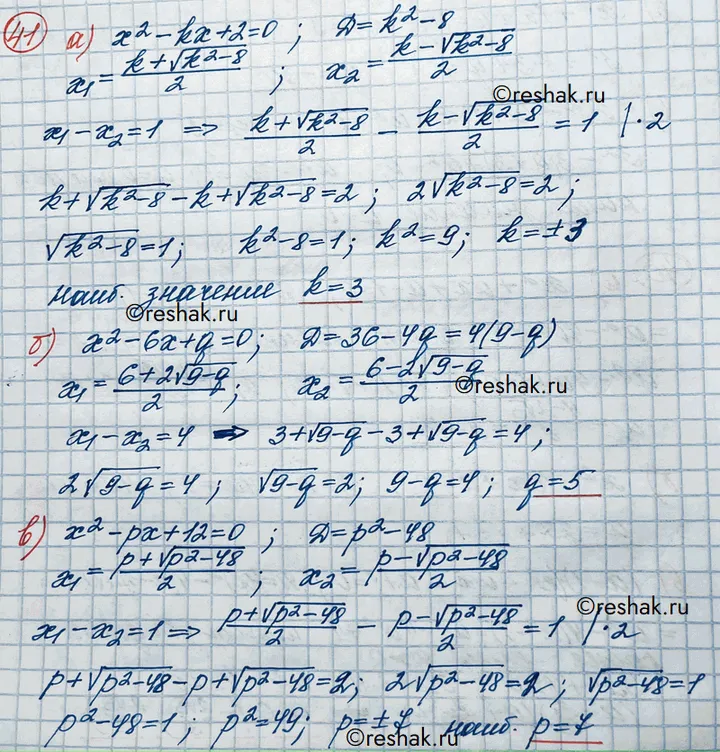 41 а) x² − kx + 2 = 0 ; D = k² − 8
x₁ = (k + √(k² − 8))/2 ; x₂ = (k − √(k² − 8))/2
©reshak.ru
x₁ − x₂ = 1 ⇒ (k + √(k² − 8))/2 − (k − √(k² − 8))/2 = 1 | · 2
k + √(k² − 8) − k + √(k² − 8) = 2 ; 2√(k² − 8) = 2 ;
√(k² − 8) = 1 ; k² − 8 = 1 ; k² = 9 ; k = ±3
наиб. значение k = 3
©reshak.ru
б) x² − 6x + q = 0 ; D = 36 − 4q = 4(9 − q)
x₁ = (6 + 2√(9 − q))/2 ; x₂ = (6 − 2√(9 − q))/2
©reshak.ru
x₁ − x₂ = 4 ⇒ 3 + √(9 − q) − 3 + √(9 − q) = 4 ;
2√(9 − q) = 4 ; √(9 − q) = 2 ; 9 − q = 4 ; q = 5
в) x² − px + 12 = 0 ; D = p² − 48
x₁ = (p + √(p² − 48))/2 ; x₂ = (p − √(p² − 48))/2
©reshak.ru
x₁ − x₂ = 1 ⇒ (p + √(p² − 48))/2 − (p − √(p² − 48))/2 = 1 | · 2
p + √(p² − 48) − p + √(p² − 48) = 2 ; 2√(p² − 48) = 2 ; √(p² − 48) = 1
p² − 48 = 1 ; p² = 49 ; p = ±7 наиб. p = 7
©reshak.ru